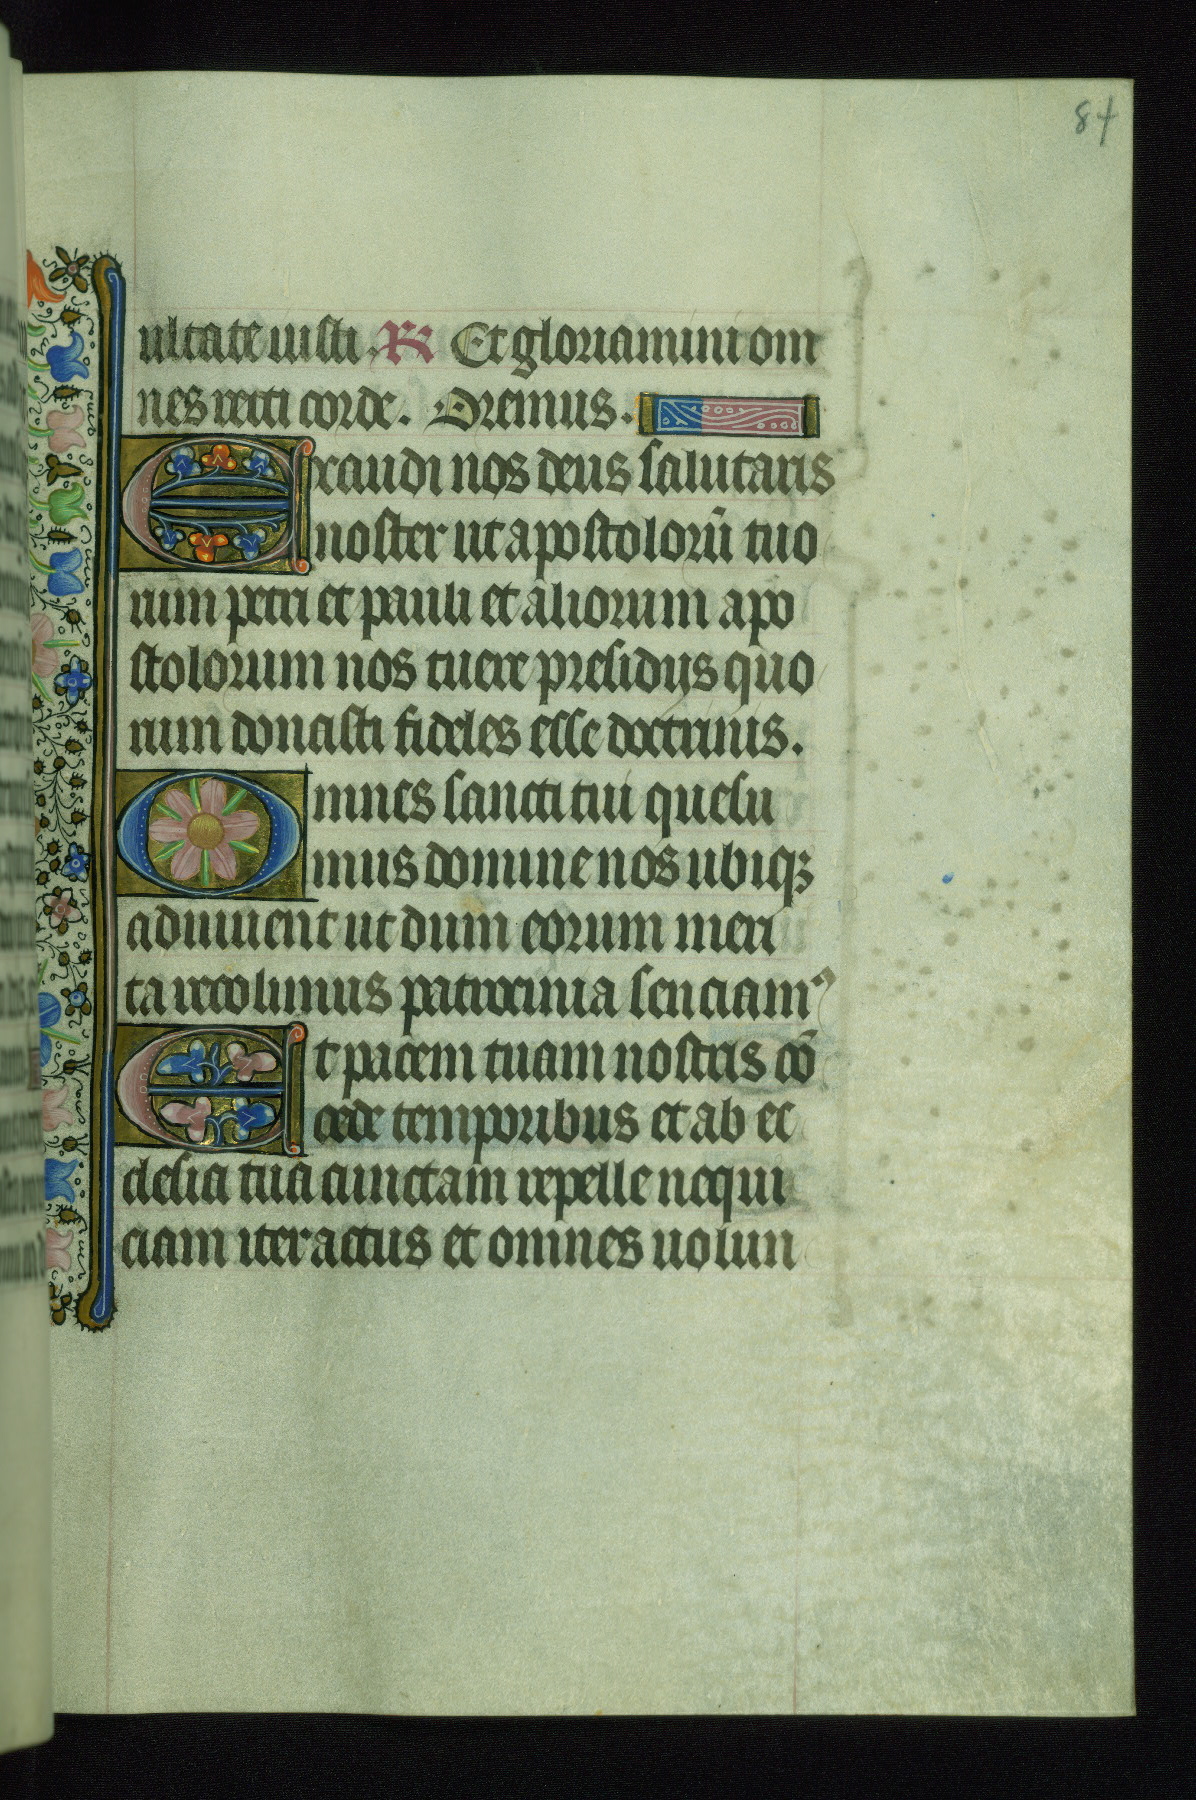 84
ultate iusti. R Et gloriamini om
nes recti corde. Oremus.
Exaudi nos deus salutaris
noster ut apostolorū tuo
rum petri et pauli et aliorum apo
stolorum nos tuere presidijs quo
rum donasti fideles esse doctrinis.
Omnes sancti tui quesu
mus domine nos ubiqꝫ
adiuuent ut dum eorum meri
ta recolimus patrocinia senciamꝰ
Et pacem tuam nostris cō
cede temporibus et ab ec
clesia tua cunctam repelle nequi
ciam iter actus et omnes uolun